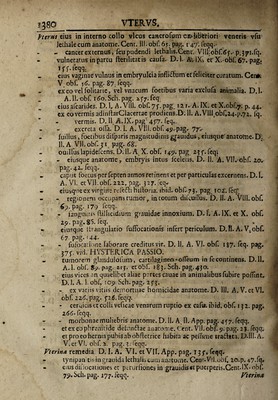 1380 VTERVS,
Vterus eius in interno collo vlcus cancrosum ex liberiori veneris vsu
lethale cum anatome. Cent. III. obs. 65. pag. 147. seqq.
- cancer externus, seu pudendi lethalis. Cent. VIII. obs. 65. p. 371. sq.
- vulneratus in partu sterilitatis causa. D. I. A. IX. et X. obs. 67. pag.
155. seqq.
- eius vaginae vulnus in embryulcia inflictum et feliciter curatum. Cent.
V. obs. 16. pag. 87. seqq.
- ex ovo vel solitarie, vel vnacum foetibus varia exclusa animalia. D. I.
A. II. obs. 160. Sch. pag. 257. seq
- eius ascarides. D. I. A. VIII. obs. 75. pag. 121. A. IX. et X. obs. 7. p. 44.
- ex eo vermis adinstar prodiens. D. II. A. VIII. obs. 24. p. 72. sq
- vermis. D. II. A. IX. pag. 427. seq.
- excreta ossa. D. I. A. VIII. obs. 49. pag. 77.
- suillus, foetibus disparis magnitudinis gravidus, eiusque anatome. D.
II. A. VII. obs. 31. pag. 68.
- ouillus lapidescens. D. II. A. X. obs. 149. pag. 255. seq.
- eiusque anatome, embryis intus sceletis. D. II. A. VII. obs. 20.
pag. 42. seqq.
- caput foetus per septem annos retinens et per particulas excernens. D. I.
A. VI. et VII. obs. 222. pag. 313. seq.
- eiusque ex virgine resecti historia. ibid. obs. 73. pag. 102. seq.
- regionem occupans tumor, in totum discussus. D. II. A. VIII. obs.
69. pag. 179. seqq.
- sanguinis suffocandum gravidae innoxium. D. I. A. IX. et X. obs.
29. pag. 85. seq.
- eiusque strangulatio suffocationis infert periculum. D. II. A. V. obs.
67. pag. 144.
- suffocatione laborare creditus vir. D. II. A. VI. obs. 187. seq. pag.
375. vid. HYSTERICA PASSIO.
- tumorem glandulosum, cartilagineo-osseum in se continens. D. II.
A. I. obs. 89. pag. 215. et obs. 183. Sch. pag. 450.
- eius vices an quaelibet aliae partes eiusve in animalibus subire possint.
D. I. A. I. obs. 109. Sch. pag. 255.
- ex variis vitiis demortuae homicidae anatome. D. III. A. V. et VI.
obs. 226. pag. 518. seqq.
- cervicis et colli vesicae venarum ruptio ex casu. ibid. obs. 132. pag.
266. seqq.
- morbonae mulieris anatome. D. II. A. II. App. pag. 457. seqq.
et ex euphrantide defunctae anatome. Cent. VII. obs. 9. pag. 23. seqq.
et pro ethereus publis ab obstetrice habita ac pessime tractata. D. III. A.
V. et VI. obs. 2. pag. 5. seqq.
Vterina remedia. D. I. A. VI. et VII. App. pag. 235. seqq.
- tympanitis in gravida lethalis cum anatome. Cent. VII. obs. 20. p. 47. sq.
- eius dislocationes et perversiones in gravidis et puerperis. Cent. IX. obs.
79. Sch. pag. 177. seqq. Vterina